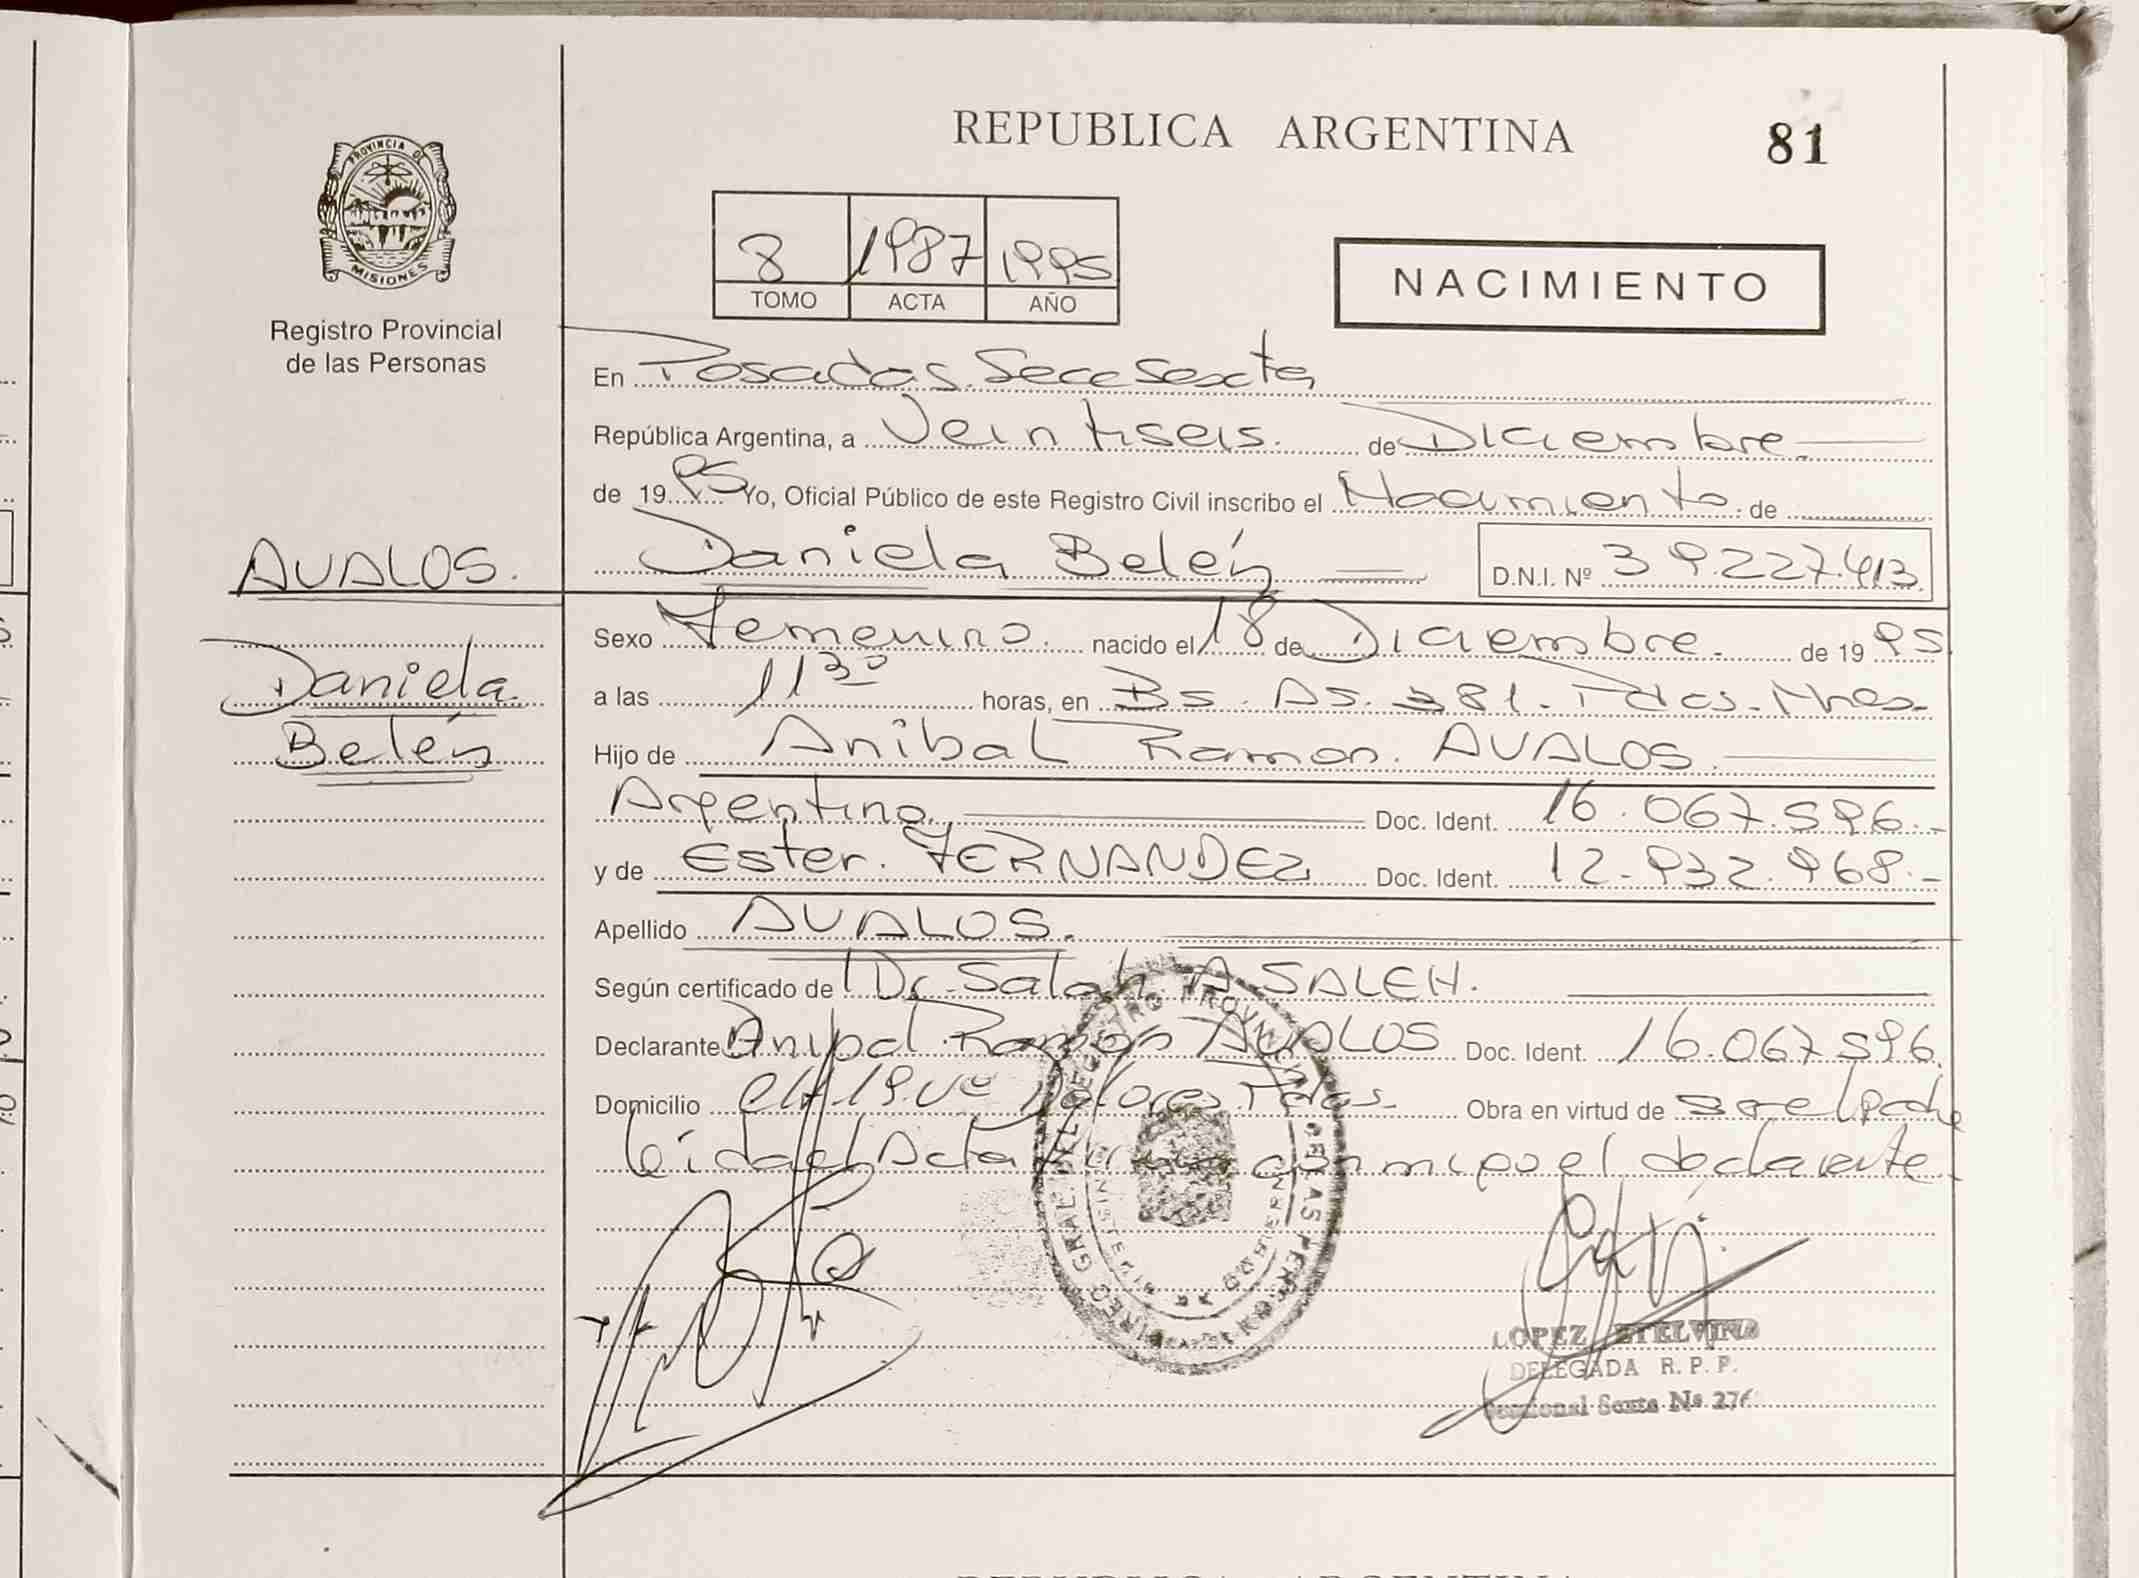 REPUBLICA ARGENTINA
81
PROVINCIA DE
MISIONES
Registro Provincial
de las Personas
8 1987 1995
TOMO ACTA AÑO
NACIMIENTO
En Posadas. Secc Sexta
República Argentina, a Veintiseis. de Diciembre.
de 1995 Yo, Oficial Público de este Registro Civil inscribo el Nacimiento. de
AVALOS.
Daniela Belén D.N.I. Nº 39.227.413
Sexo Femenino. nacido el 18 de Diciembre. de 1995
Daniela
Belén
a las 11 30 horas, en Bs. As. 381. Pdas. Mnes.
Hijo de Anibal Ramon. AVALOS.
Argentina, Doc. Ident. 16.067.596.-
y de Ester. FERNANDEZ Doc. Ident. 12.932.968.-
Apellido AVALOS.
Según certificado de Dr. Salah A SALEH.
Declarante Anibal Ramon AVALOS Doc. Ident. 16.067.596.
Domicilio Dolores. Pdas. Obra en virtud de
Acta conmigo el declarante.
LOPEZ ETELVINA
DELEGADA R. P. P.
Seccional Sexta Nº 276